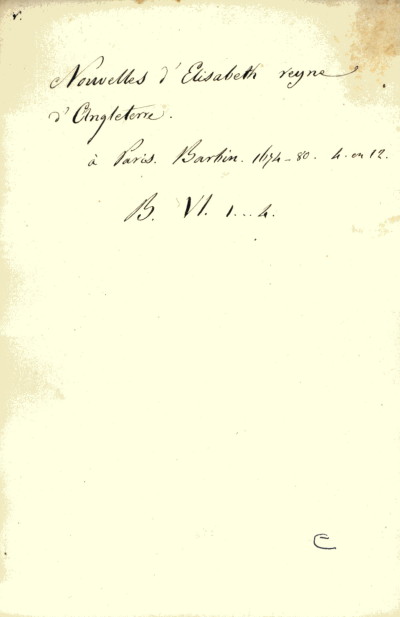 v.
Nouvelles d'Elisabeth reyne
d'Angleterre.
à Paris. Barbin. 1674-80. 4. en 12.
B. VI. 1...4.
C